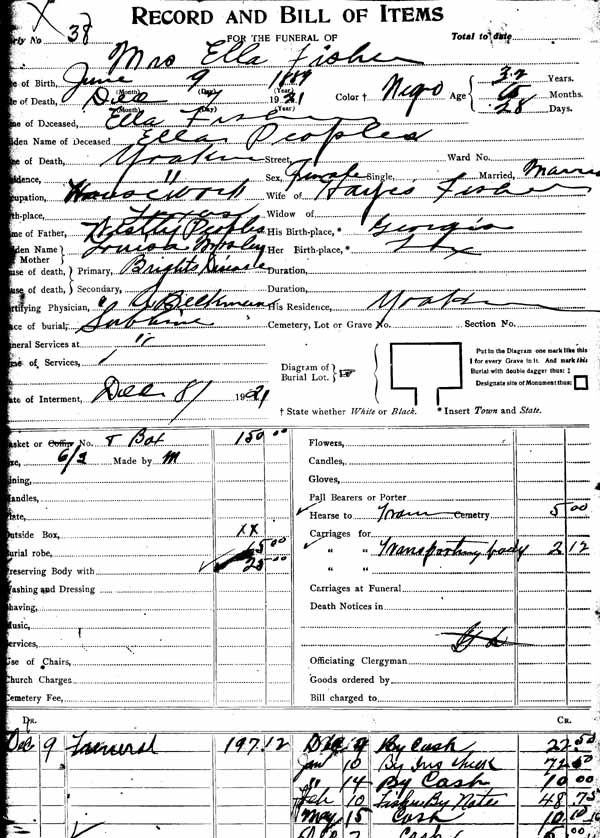 RECORD AND BILL OF ITEMS
X 38
rly No FOR THE FUNERAL OF Total to date
Mrs Ella Fisher
e of Birth, June 9 1889 32 Years.
(Month) (Day) (Year)
e of Death, Dec 7 1921 Color † Negro Age 6 Months.
(Month) (Day) (Year) 28 Days.
me of Deceased Ella Fisher
iden Name of Deceased Ella Peoples
ce of Death, Yoakum Street, Ward No.
sidence, " Sex, Female Single, Married, Married
cupation, Housework Wife of Hayes Fisher
rth-place, Texas Widow of
me of Father, Westly Peoples His Birth-place,* Georgia
dden Name } Louisa Mosley Her Birth-place,* Tex
Mother
use of death, } Primary, Brights Disease Duration,
use of death, Secondary, Duration,
rtifying Physician, Beckmann His Residence, Yoakum
ace of burial, Sublime Cemetery, Lot or Grave No. Section No.
neral Services at "
me of Services,
Diagram of
Burial Lot.
Put in the Diagram one mark like this
I for every Grave in it. And mark this
Burial with double dagger thus: ‡
Designate site of Monument thus:
ate of Interment, Dec 8 1921
† State whether White or Black. * Insert Town and State.
asket or Coffin No. & Box 150 00 Flowers,
ze, 6/3 Made by M Candles,
ining, Gloves,
Handles, Pall Bearers or Porter
late, Hearse to Train Cemetry 5 00
utside Box, XX Carriages for
urial robe, 15 00 " " Transporting body 2 12
reserving Body with 25 00 " "
ashing and Dressing Carriages at Funeral
having, Death Notices in
usic,
ervices,
se of Chairs, Officiating Clergyman
hurch Charges Goods ordered by
emetery Fee, Bill charged to
DR. CR.
Dec 9 Funeral 197.12 Dec 9 By Cash 22.50
Jan 10 By Ins Check
" 14 By Cash 10 00
Feb 10 Fisher By Notes 48.75
May 15 Cash 10
Cash 5 00